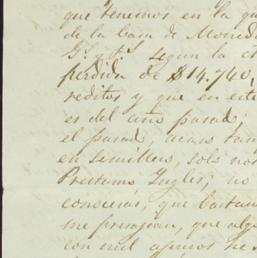 que tenemos en la qu
de la Casa de Moned
Gl. y Pl. segun la c
perdida de $14.740,
reditos y que en este
es del año pasado,
el pasado, acaso tam
en semillas, solo nos
Prestamo Ingles, no
conoceras, que bastan
me perjudican, que alg
con mil apuros he